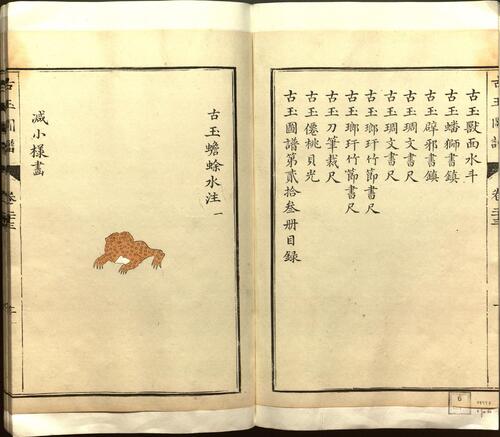 古玉獸面水斗
古玉蟠獅書鎮
古玉辟邪書鎮
古玉琱文書尺
古玉琱文書尺
古玉瑯玕竹節書尺
古玉瑯玕竹節書尺
古玉刀筆裁尺
古玉僊桃貝光
古玉圖譜第貳拾叁册目錄
古玉蟾蜍水注一
减小樣畫
古玉圖譜
6